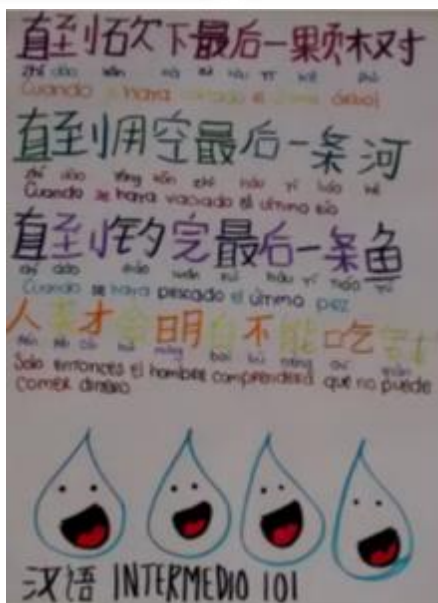 直到砍下最后一颗树
zhí dào kǎn xià zuì hòu yī kē shù
Cuando se haya cortado el último árbol
直到用空最后一条河
zhí dào yòng kōng zuì hòu yī tiáo hé
Cuando se haya vaciado el último río
直到钓完最后一条鱼
zhí dào diào wán zuì hòu yī tiáo yú
Cuando se haya pescado el último pez
人类才会明白不能吃钱
míng bái bù néng chī qián
Solo entonces el hombre comprenderá que no puede
comer dinero
汉语 INTERMEDIO 101